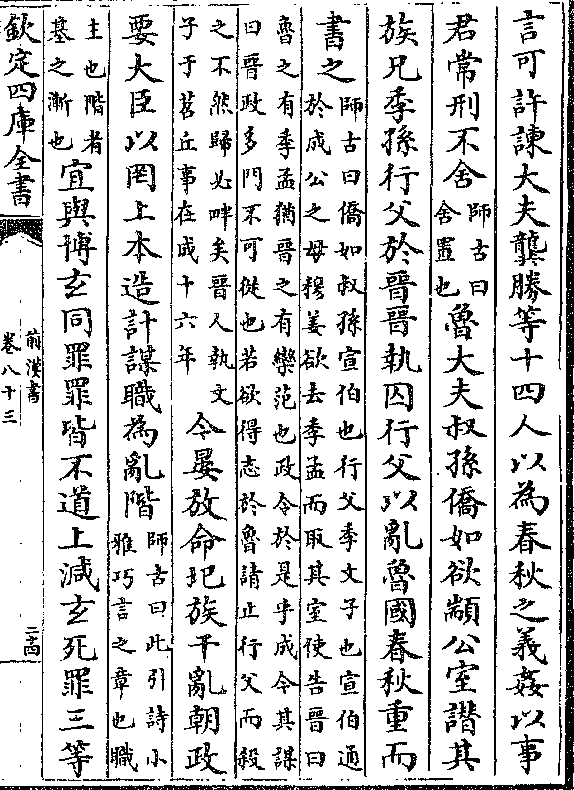 言可許諫大夫龔勝等十四人以為春秋之義姦以事
君常刑不舍師古曰舍置也魯大夫叔孫僑如欲顓公室譖其
族兄季孫行父於晉晉執囚行父以亂魯國春秋重而
書之師古曰僑如叔孫宣伯也行父季文子也宣伯通於成公之母穆姜欲去季孟而取其室使告晉曰
魯之有季孟猶晉之有欒范也政令於是乎成今其謀曰晉政多門不可從也若欲得志於魯請止行父而殺
之不然歸必畔矣晉人執文子于苕丘事在成十六年今晏放命圯族干亂朝政
要大臣以罔上本造計謀職為亂階師古曰此引詩小雅巧言之章也職
主也階者基之漸也宜與博玄同罪罪皆不道上減玄死罪三等
欽定四庫全書
前漢書
卷八十三
二十四